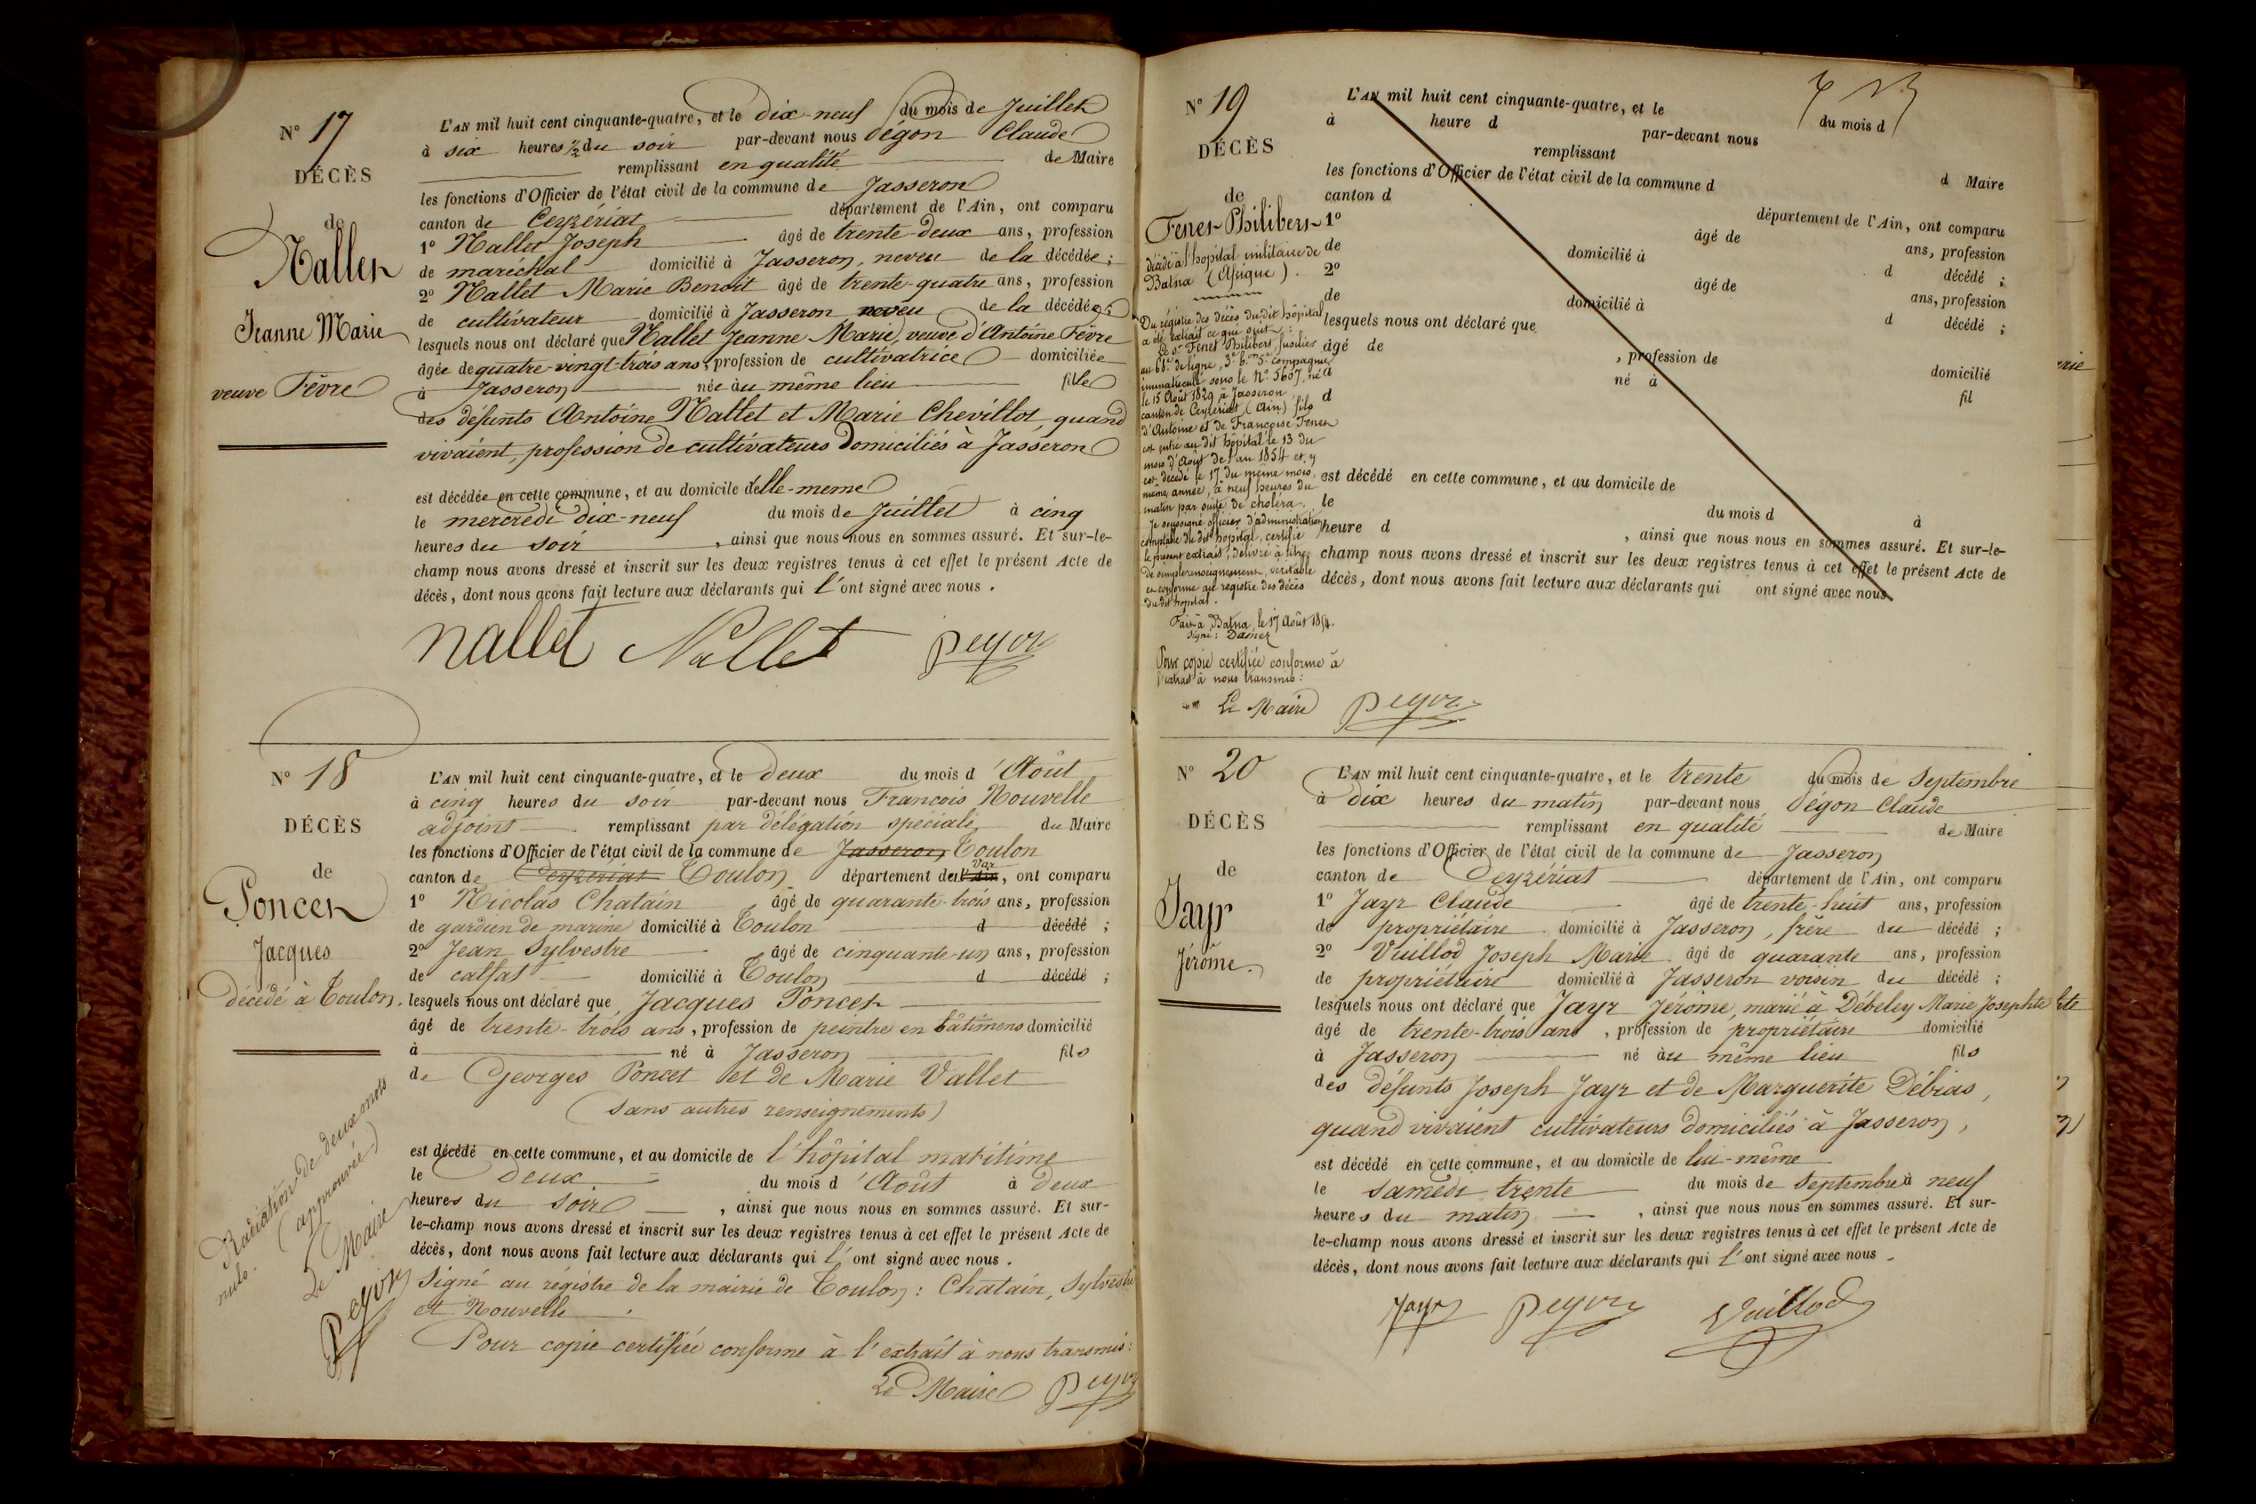 N° 17
DÉCÈS
de
Nallet
Jeanne Marie
veuve Fèvre
L'AN mil huit cent cinquante-quatre, et le dix-neuf du mois de Juillet
à six heures ½ du soir par-devant nous Dégon Claude
remplissant en qualité de Maire
les fonctions d'Officier de l'état civil de la commune de Jasseron
canton de Ceyzériat département de l'Ain, ont comparu
1° Nallet Joseph âgé de trente-deux ans, profession
de maréchal domicilié à Jasseron, neveu de la décédée ;
2° Nallet Marie Benoit âgé de trente-quatre ans, profession
de cultivateur domicilié à Jasseron neveu de la décédée ;
lesquels nous ont déclaré que Nallet Jeanne Marie, veuve d'Antoine Fèvre
âgée de quatre-vingt-trois ans, profession de cultivatrice domiciliée
à Jasseron née au même lieu fille
des défunts Antoine Nallet et Marie Chevillot, quand
vivaient, profession de cultivateurs domiciliés à Jasseron
est décédée en cette commune, et au domicile d'elle-meme
le mercredi dix-neuf du mois de Juillet à cinq
heures du soir, ainsi que nous nous en sommes assuré. Et sur-le-
champ nous avons dressé et inscrit sur les deux registres tenus à cet effet le présent Acte de
décès, dont nous avons fait lecture aux déclarants qui l'ont signé avec nous.
nallet Nallet Degon
N° 18
DÉCÈS
de
Poncet
Jacques
décédé à Toulon.
L'AN mil huit cent cinquante-quatre, et le deux du mois d'Août
à cinq heures du soir par-devant nous François Nouvelle
adjoint remplissant par délégation spéciale du Maire
les fonctions d'Officier de l'état civil de la commune de Jasseron Toulon
canton de Ceyzériat Toulon département du l'Ain Var, ont comparu
1° Nicolas Chatain âgé de quarante-trois ans, profession
de gardien de marine domicilié à Toulon d décédé ;
2° Jean Sylvestre âgé de cinquante-un ans, profession
de calfat domicilié à Toulon d décédé ;
lesquels nous ont déclaré que Jacques Poncet
âgé de trente-trois ans, profession de peintre en bâtimens domicilié
à né à Jasseron fils
de Georges Poncet et de Marie Vallet
(sans autres renseignements)
est décédé en cette commune, et au domicile de l'hôpital maritime
le Deux du mois d'Août à deux
heures du soir, ainsi que nous nous en sommes assuré. Et sur-
le-champ nous avons dressé et inscrit sur les deux registres tenus à cet effet le présent Acte de
décès, dont nous avons fait lecture aux déclarants qui l'ont signé avec nous.
Signé au régistre de la mairie de Toulon : Chatain, Sylvestre
et Nouvelle.
Pour copie certifiée conforme à l'extrait à nous transmis :
Le Maire Degon
Radiation de deux mots
nuls. (approuvée)
Le Maire
Degon
N° 19
DÉCÈS
de
Fenet Philibert
décédé à l'hôpital militaire de
Batna (Afrique).
Du régistre des décès du dit hôpital
a été extrait ce qui suit :
Le Sr Fenet Philibert fusilier
au 68e de ligne, 3e bon 5e compagnie
immatriculé sous le N° 5607, né
le 15 Août 1829 à Jasseron
canton de Ceyzériat (Ain) fils
d'Antoine et de Françoise Fenet
est entré au dit hôpital le 13 du
mois d'Août de l'an 1854 et y
est décédé le 17 du même mois,
même année, à neuf heures du
matin par suite de choléra.
Je soussigné officier d'administration
comptable du dit hôpital, certifie
le présent extrait, délivré à titre
de simple renseignement, véritable
et conforme au registre des décès
du dit hôpital.
Fait à Batna, le 17 Août 1854.
Signé :
Pour copie certifiée conforme à
l'extrait à nous transmis :
Le Maire Degon
L'AN mil huit cent cinquante-quatre, et le du mois d
à heure d par-devant nous
remplissant d Maire
les fonctions d'Officier de l'état civil de la commune d
canton d département de l'Ain, ont comparu
1° âgé de ans, profession
de domicilié à d décédé ;
2° âgé de ans, profession
de domicilié à d décédé ;
lesquels nous ont déclaré que
âgé de, profession de domicilié
à né à fil
d
est décédé en cette commune, et au domicile de
le du mois d à
heure d, ainsi que nous nous en sommes assuré. Et sur-le-
champ nous avons dressé et inscrit sur les deux registres tenus à cet effet le présent Acte de
décès, dont nous avons fait lecture aux déclarants qui ont signé avec nous
N° 20
DÉCÈS
de
Jayr
Jérôme.
L'AN mil huit cent cinquante-quatre, et le trente du mois de Septembre
à dix heures du matin par-devant nous Dégon Claude
remplissant en qualité de Maire
les fonctions d'Officier de l'état civil de la commune de Jasseron
canton de Ceyzériat département de l'Ain, ont comparu
1° Jayr Claude âgé de trente-huit ans, profession
de propriétaire domicilié à Jasseron, frère du décédé ;
2° Vuillod Joseph Marie âgé de quarante ans, profession
de propriétaire domicilié à Jasseron voisin du décédé ;
lesquels nous ont déclaré que Jayr Jérôme, marié à Débeley Marie Josephte
âgé de trente-trois ans, profession de propriétaire domicilié
à Jasseron né au même lieu fils
des défunts Joseph Jayr et de Marguerite Débias,
quand vivaient cultivateurs domiciliés à Jasseron,
est décédé en cette commune, et au domicile de lui-même
le samedi trente du mois de Septembre à neuf
heures du matin, ainsi que nous nous en sommes assuré. Et sur-
le-champ nous avons dressé et inscrit sur les deux registres tenus à cet effet le présent Acte de
décès, dont nous avons fait lecture aux déclarants qui l'ont signé avec nous.
Jayr Degon Vuillod